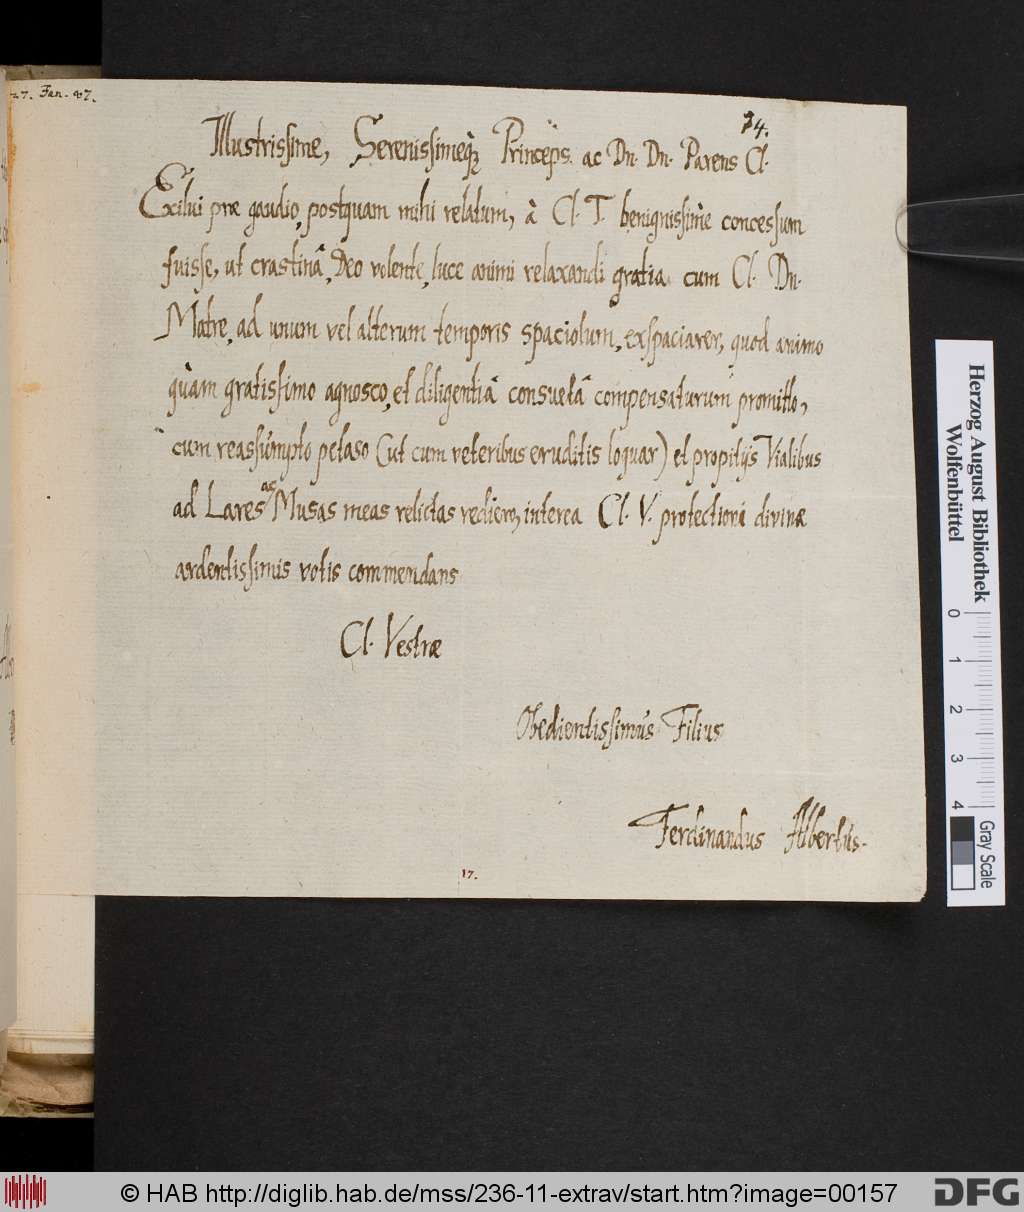 27. Jan. 47.
74.
Illustrissime, Serenissimeq; Princeps. ac Dn. Dn. Parens Cl.
Exilui præ gaudio, postquam mihi relatum, à Cl. T. benignissimè concessum
fuisse, ut crastinâ, Deo volente, luce animi relaxandi gratia cum Cl. Dn.
Matre, ad unum vel alterum temporis spaciolum, exspaciarer, quod animo
quàm gratissimo agnosco, et diligentiâ consuetâ compensaturum promitto,
cum reassumpto petaso (ut cum veteribus eruditis loquar) et propitijs Vialibus
ad Lares ac Musas meas relictas rediero, interea Cl. V. protectioni divinæ
ardentissimis votis commendans
Cl. Vestræ
Obedientissimus Filius
Ferdinandus Albertus.
17.
Herzog August Bibliothek
Wolfenbüttel
0 1 2 3 4
Gray Scale
© HAB http://diglib.hab.de/mss/236-11-extrav/start.htm?image=00157
DFG